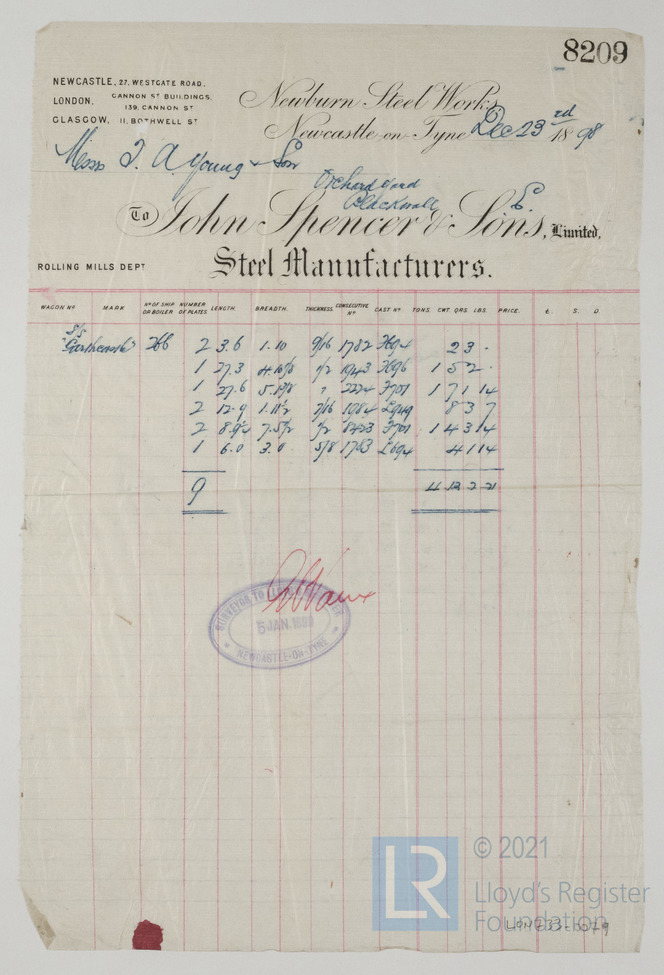 8209
NEWCASTLE, 27, WESTGATE ROAD.
LONDON, CANNON ST BUILDINGS,
139, CANNON ST
GLASGOW, 11, BOTHWELL ST
Newburn Steel Works
Newcastle on Tyne Dec 23rd 1898
Messrs T. A. Young & Son
Orchard Yard
Blackwall E.
To John Spencer & Sons, Limited,
ROLLING MILLS DEPT Steel Manufacturers.
WAGON No MARK No OF SHIP OR BOILER NUMBER OF PLATES LENGTH. BREADTH. THICKNESS. CONSECUTIVE No CAST No TONS. CWT. QRS. LBS. PRICE. £. S. D.
S/S
266 2 3.6 1.10 9/16 1782 2 3 .
1 27.3 1/2 1943 1 5 2 .
1 27.6 " 2224 1 7 1 14
2 12.9 1.11 1/2 7/16 1084 8 3 7
2 7.5 1/2 1/2 8423 1 4 3 14
1 6.0 3.0 5/8 1753 £694 4 1 14
9 4 12 2 21
SURVEYOR TO LLOYD'S REGISTER
5 JAN. 1899
NEWCASTLE-ON-TYNE
LR © 2021
Lloyd's Register
Foundation
LON733-0079